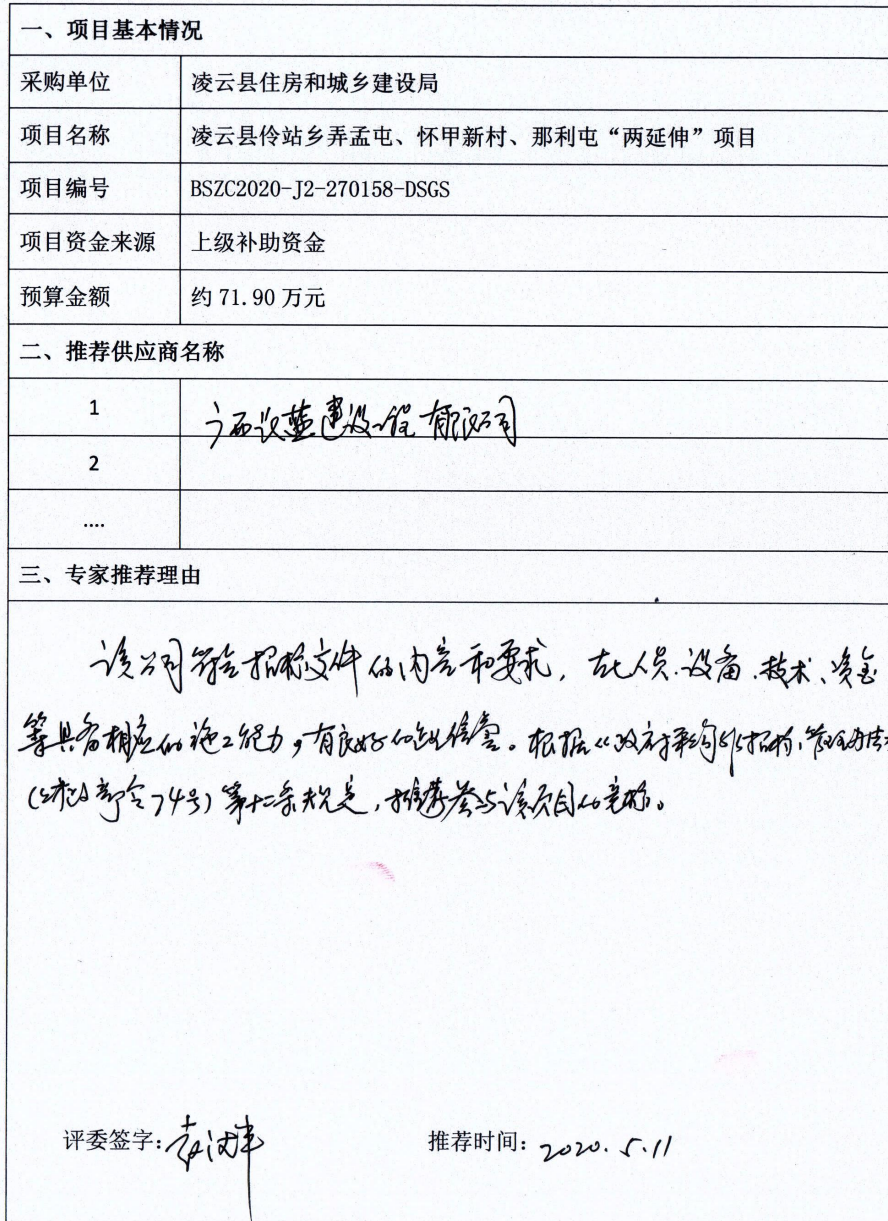 一、项目基本情况
采购单位 凌云县住房和城乡建设局
项目名称 凌云县伶站乡弄孟屯、怀甲新村、那利屯“两延伸”项目
项目编号 BSZC2020-J2-270158-DSGS
项目资金来源 上级补助资金
预算金额 约 71.90 万元
二、推荐供应商名称
1 广西议蓝建设工程有限公司
2
....
三、专家推荐理由
该公司符合招标文件的内容和要求，在人员、设备、技术、资金
等具备相应的施工能力，有良好的企业信誉。根据《政府采购非招标管理办法
(财政部令74号)第十二条规定，推荐参与该项目的竞标。
评委签字： 推荐时间：2020.5.11